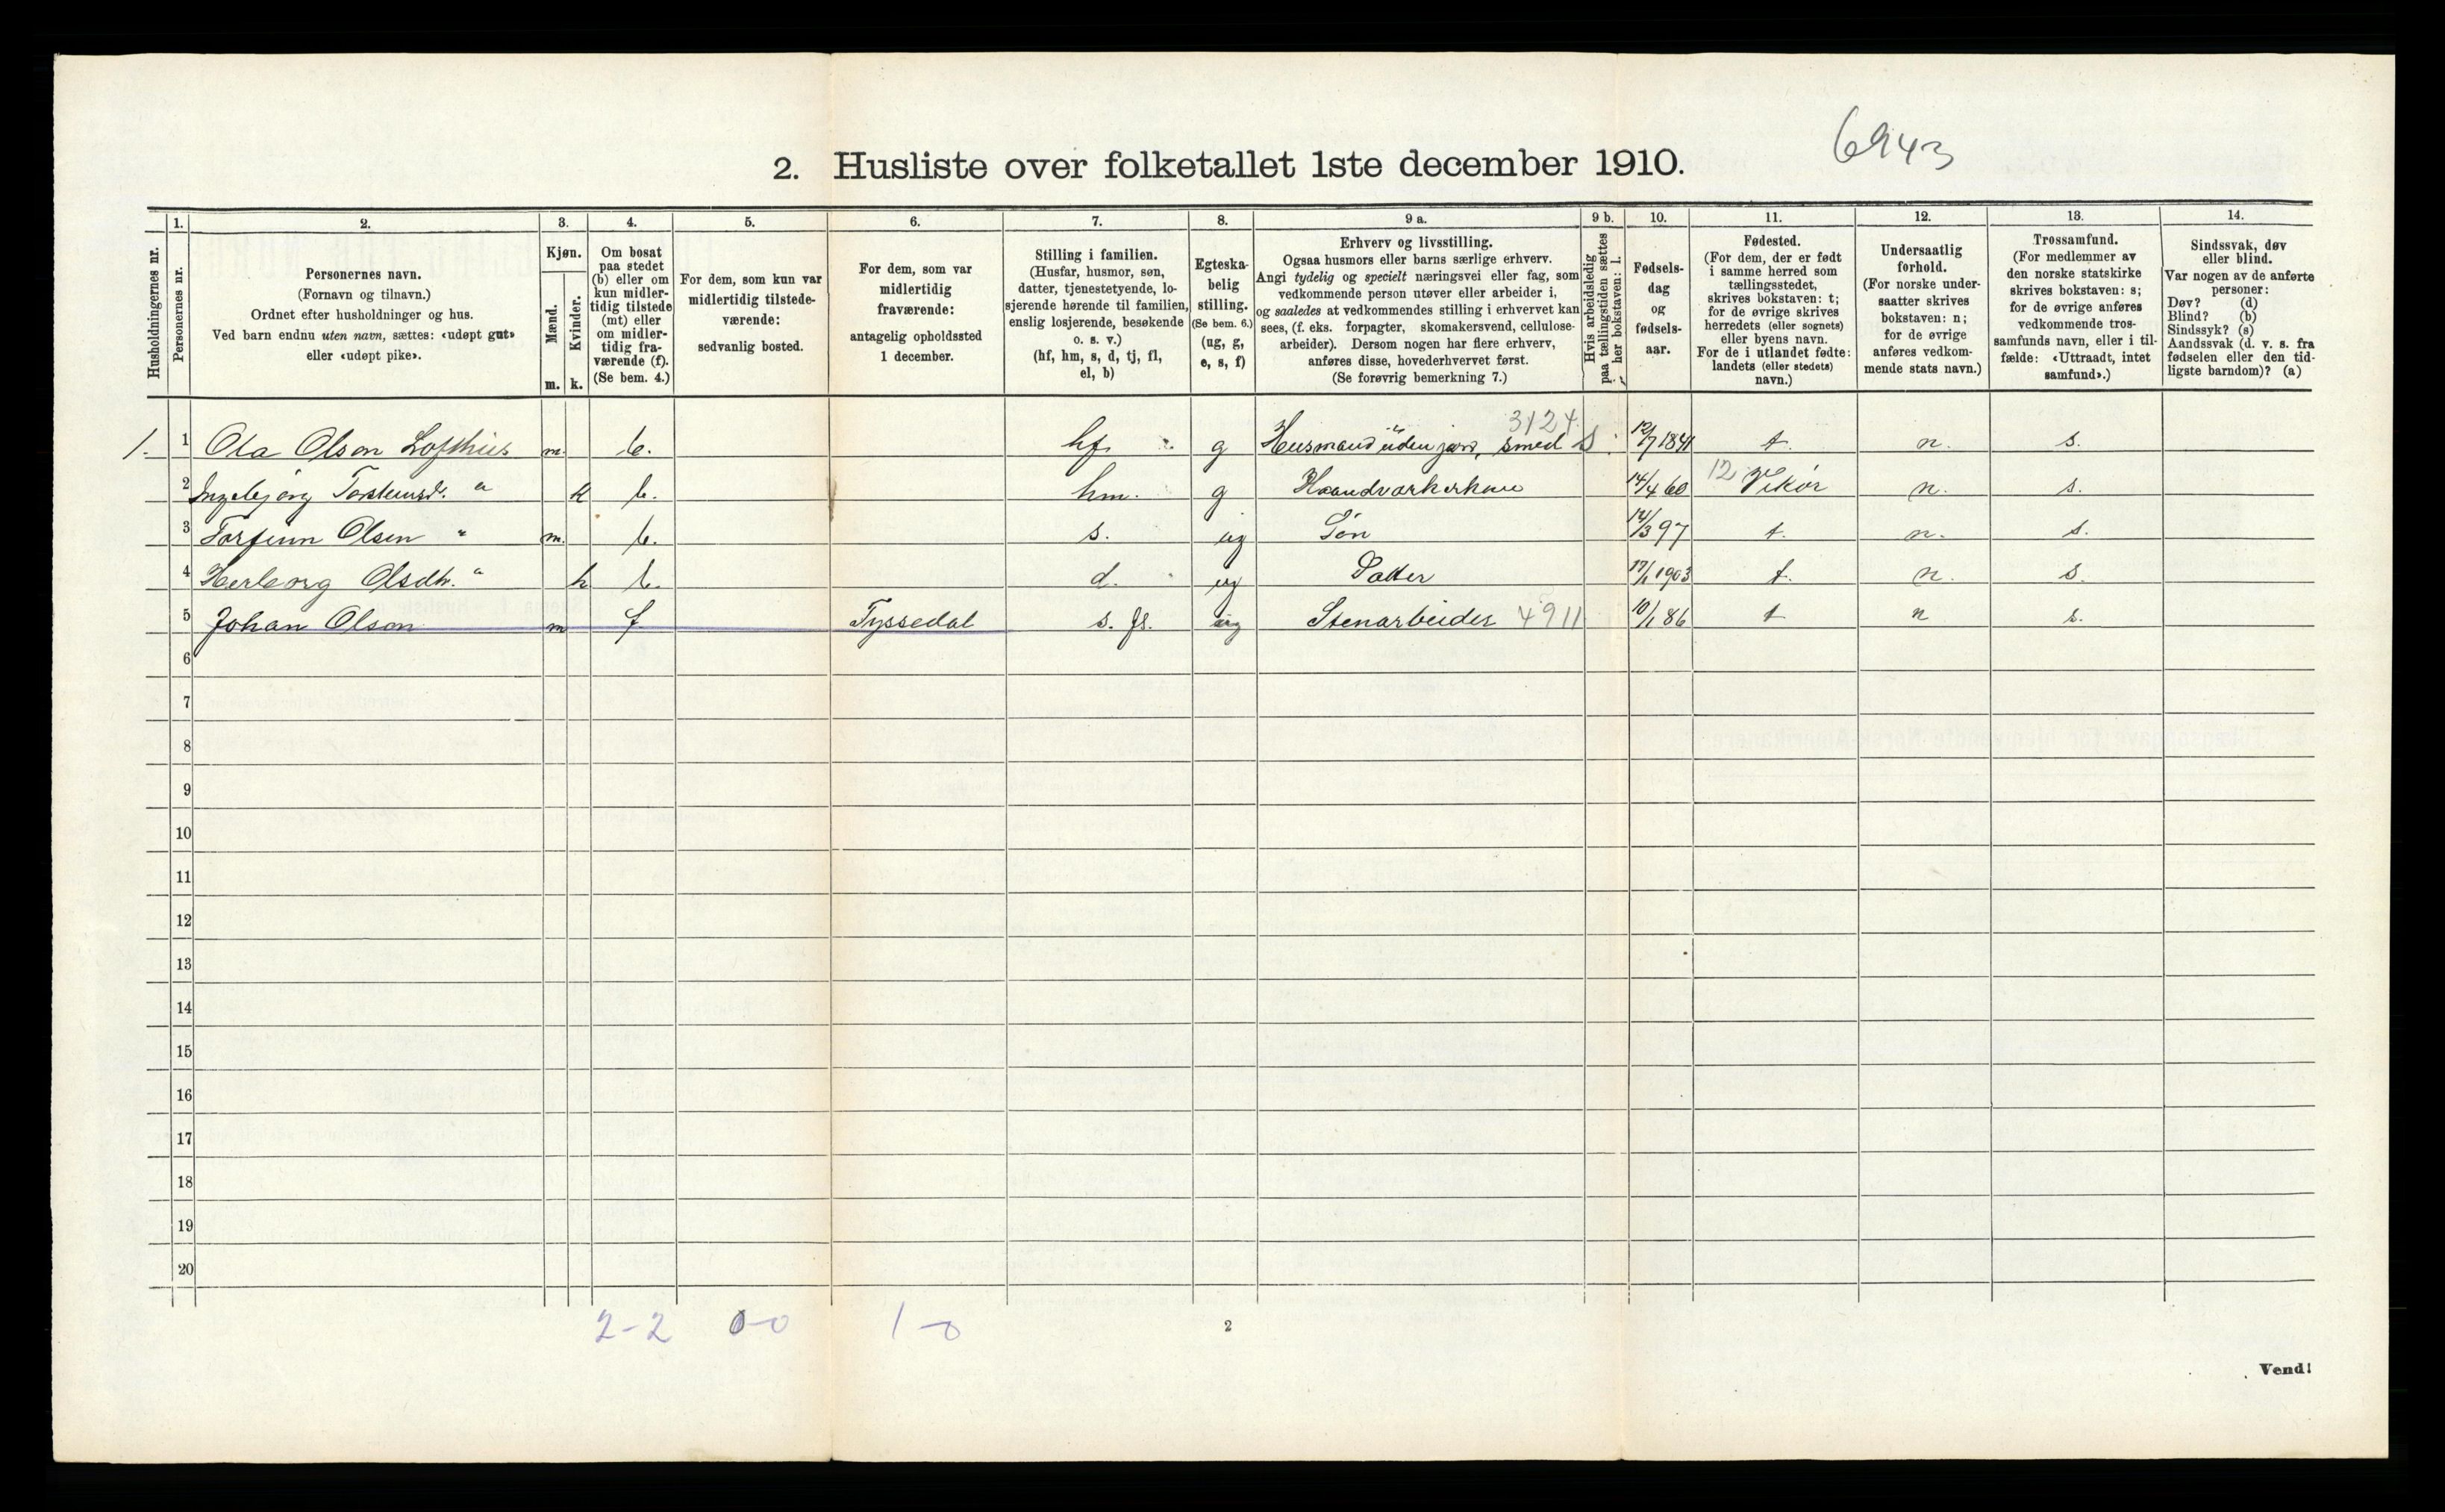 6943
2. Husliste over folketallet 1ste december 1910.
Husholdningernes nr.
1. Personernes nr.
2. Personernes navn. (Fornavn og tilnavn.) Ordnet efter husholdninger og hus. Ved barn endnu uten navn, sættes: «udøpt gut» eller «udøpt pike».
3. Kjøn. Mænd. m. Kvinder. k.
4. Om bosat paa stedet (b) eller om kun midlertidig tilstede (mt) eller om midlertidig fraværende (f). (Se bem. 4.)
5. For dem, som kun var midlertidig tilstedeværende: sedvanlig bosted.
6. For dem, som var midlertidig fraværende: antagelig opholdssted 1 december.
7. Stilling i familien. (Husfar, husmor, søn, datter, tjenestetyende, losjerende hørende til familien, enslig losjerende, besøkende o. s. v.) (hf, hm, s, d, tj, fl, el, b)
8. Egteskabelig stilling. (Se bem. 6.) (ug, g, e, s, f)
9 a. Erhverv og livsstilling. Ogsaa husmors eller barns særlige erhverv. Angi tydelig og specielt næringsvei eller fag, som vedkommende person utøver eller arbeider i, og saaledes at vedkommendes stilling i erhvervet kan sees, (f. eks. forpagter, skomakersvend, cellulosearbeider). Dersom nogen har flere erhverv, anføres disse, hovederhvervet først. (Se forøvrig bemerkning 7.)
9 b. Hvis arbeidsledig paa tællingstiden sættes her bokstaven: l.
10. Fødselsdag og fødselsaar.
11. Fødested. (For dem, der er født i samme herred som tællingsstedet, skrives bokstaven: t; for de øvrige skrives herredets (eller sognets) eller byens navn. For de i utlandet fødte: landets (eller stedets) navn.)
12. Undersaatlig forhold. (For norske undersaatter skrives bokstaven: n; for de øvrige anføres vedkommende stats navn.)
13. Trossamfund. (For medlemmer av den norske statskirke skrives bokstaven: s; for de øvrige anføres vedkommende trossamfunds navn, eller i tilfælde: «Uttraadt, intet samfund».)
14. Sindssvak, døv eller blind. Var nogen av de anførte personer: Døv? (d) Blind? (b) Sindssyk? (s) Aandssvak (d. v. s. fra fødselen eller den tidligste barndom)? (a)
1. 1 Ola Olson Lofthus m. b. hf. g Husmand uden jord, smed 3124 S 12/7 1841 t. n. s.
2 Ingebjørg Torsteinsd. " k b. hm. g Haandværkerkone 14/4 60 12 Vikør n. s.
3 Torfinn Olsen " m. b. s. ug Søn 12/3 97 t. n. s.
4 Herborg Olsdtr. " k b. d. ug Datter 17/1 1903 t. n. s.
5 Johan Olson m f Tyssedal s. fl. ug Stenarbeider 4911 10/1 86 t n s.
6
7
8
9
10
11
12
13
14
15
16
17
18
19
20
2-2 0-0 1-0
2
Vend!